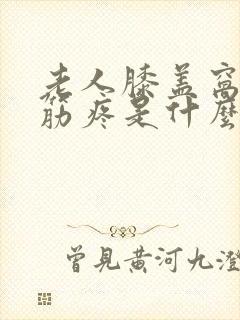 老人膝盖窝
筋疼是什麼
曾見黄河九澄